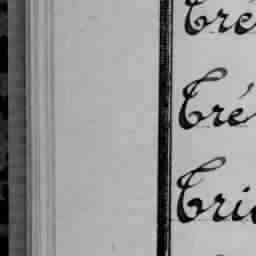 Tré
Tré
Tri